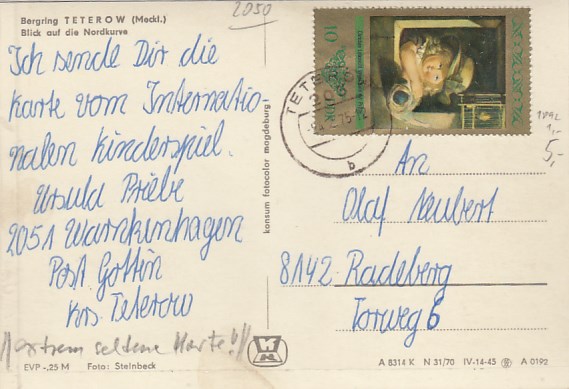 Bergring TETEROW (Meckl.)
Blick auf die Nordkurve
2050
Ich sende Dir die
Karte vom Internatio-
nalen Kinderspiel.
Ursula Priebe
2051 Warnkenhagen
Post Gottin
Krs. Teterow
extrem seltene Karte!
EVP -.25 M Foto: Steinbeck
konsum fotocolor magdeburg
10
DDR
TETE
b
5,-
An
Olaf Neubert
8142 Radeberg
Torweg 6
A 8314 K N 31/70 IV-14-45 A 0192